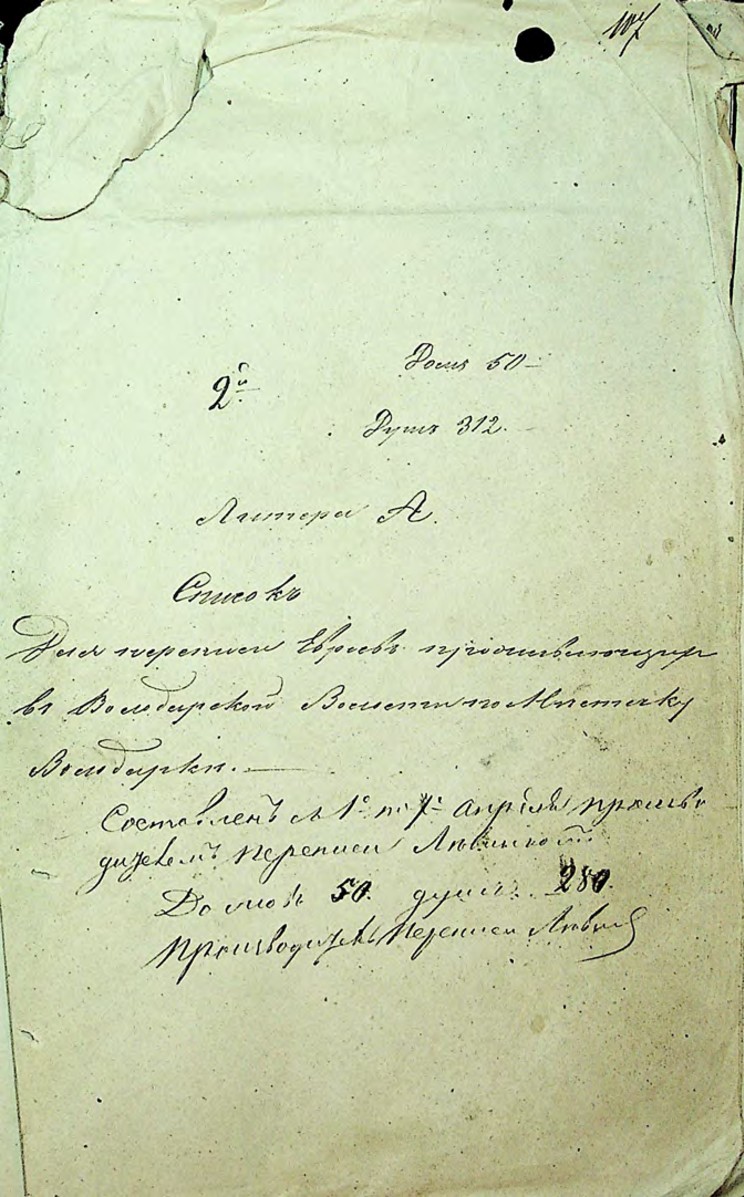 107
Домъ 50 —
2й
Душъ 312.
Литера А.
Списокъ
Для переписи Евреевъ проживающихъ
въ Володарской Волости по Мистечку
Володарки. —
Составленъ с 1го по 7е Апреля произво
дителемъ переписи
Домовъ 50. душъ. 280.
Производитель переписи